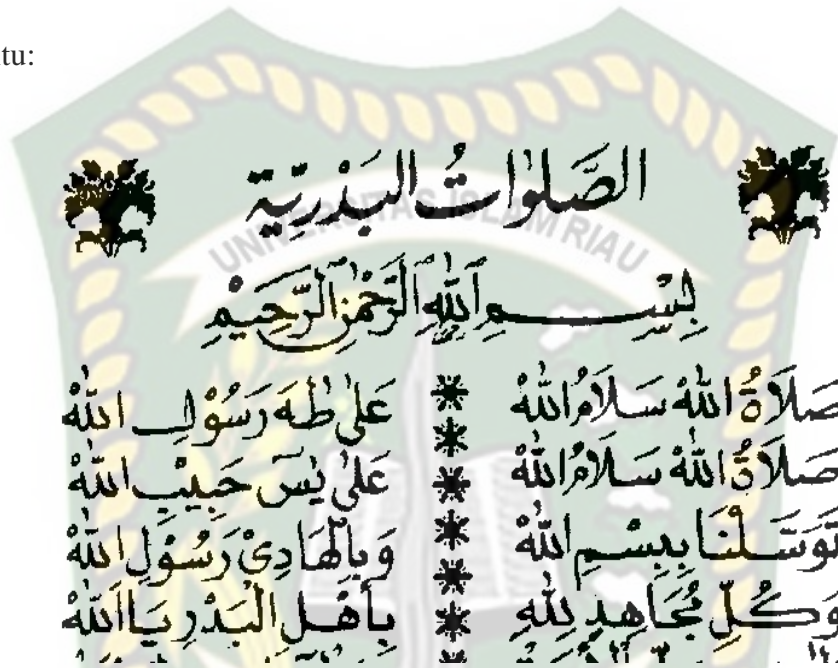 tu:
الصَّلَوَاتُ البَدْرِيَّة
UNIVERSITAS ISLAM RIAU
بِسْمِ اللهِ الرَّحْمٰنِ الرَّحِيْمِ
صَلَاةُ اللهْ سَلَامُ اللهْ * عَلٰى طٰهَ رَسُوْلِ اللهْ
صَلَاةُ اللهْ سَلَامُ اللهْ * عَلٰى يٰسٓ حَبِيْبِ اللهْ
تَوَسَّلْنَا بِبِسْمِ اللهْ * وَبِالْهَادِيْ رَسُوْلِ اللهْ
وَكُلِّ مُجَاهِدٍ لِلّٰهِ * بِأَهْلِ الْبَدْرِ يَا اَللهْ